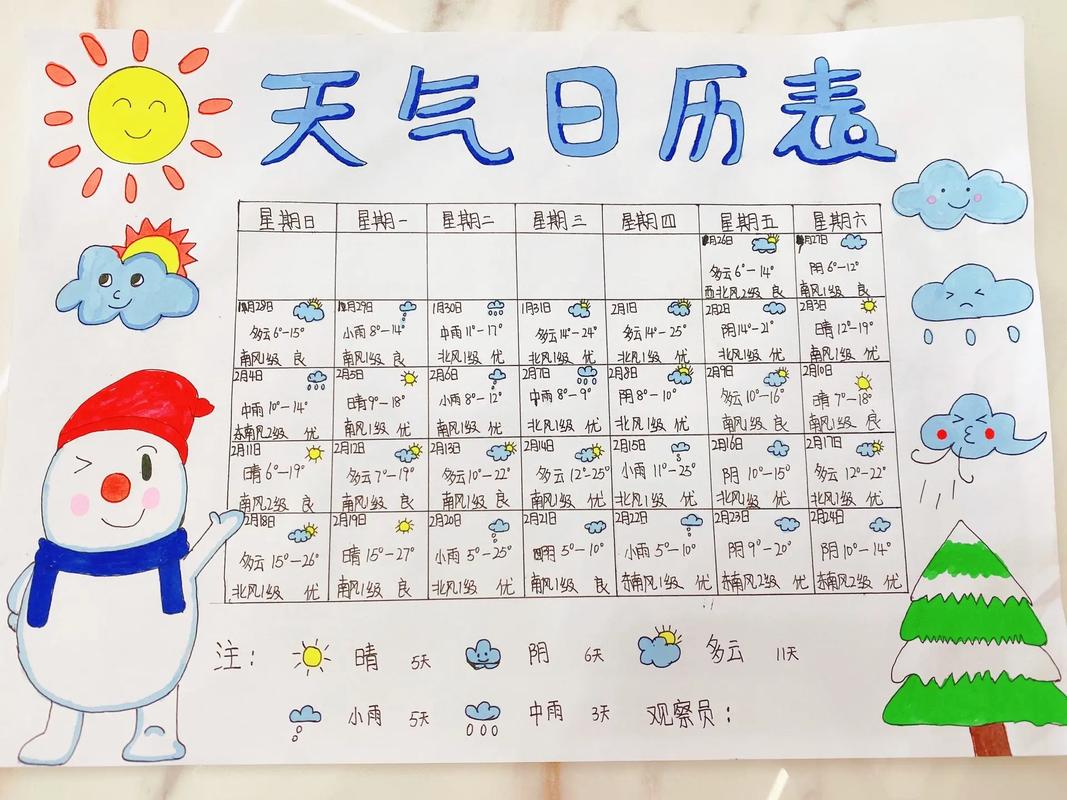 天气日历表
星期日 星期一 星期二 星期三 星期四 星期五 星期六
月26日 月27日
多云 6°-14° 阴 6°-12°
西北风2级 良 南风1级 良
月28日 月29日 1月30日 1月31日 2月1日 2月2日 2月3日
多云 6°-15° 小雨 8°-14° 中雨 11°-17° 多云 14°-24° 多云 14°-25° 阴 14°-21° 晴 12°-19°
南风1级 良 南风1级 良 北风1级 优 北风1级 优 北风1级 优 北风1级 优 南风1级 优
2月4日 2月5日 2月6日 2月7日 2月8日 2月9日 2月10日
中雨 10°-14° 晴 9°-18° 小雨 8°-12° 中雨 8°-9° 阴 8°-10° 多云 10°-16° 晴 7°-18°
东南风2级 优 南风1级 优 南风1级 优 北风1级 优 北风1级 优 南风1级 良 南风1级 良
2月11日 2月12日 2月13日 2月14日 2月15日 2月16日 2月17日
晴 6°-19° 多云 7°-19° 多云 10°-22° 多云 12°-25° 小雨 11°-25° 阴 10°-15° 多云 12°-22°
南风2级 良 南风1级 良 南风1级 良 南风1级 优 北风1级 优 北风1级 优 北风1级 优
2月18日 2月19日 2月20日 2月21日 2月22日 2月23日 2月24日
多云 15°-26° 晴 15°-27° 小雨 5°-25° 阴 5°-10° 小雨 5°-10° 阴 9°-20° 阴 10°-14°
北风1级 优 南风1级 优 北风1级 优 南风1级 良 东南风1级 优 东南风2级 优 东南风2级 优
注: 晴 5天 阴 6天 多云 11天
小雨 5天 中雨 3天 观察员: